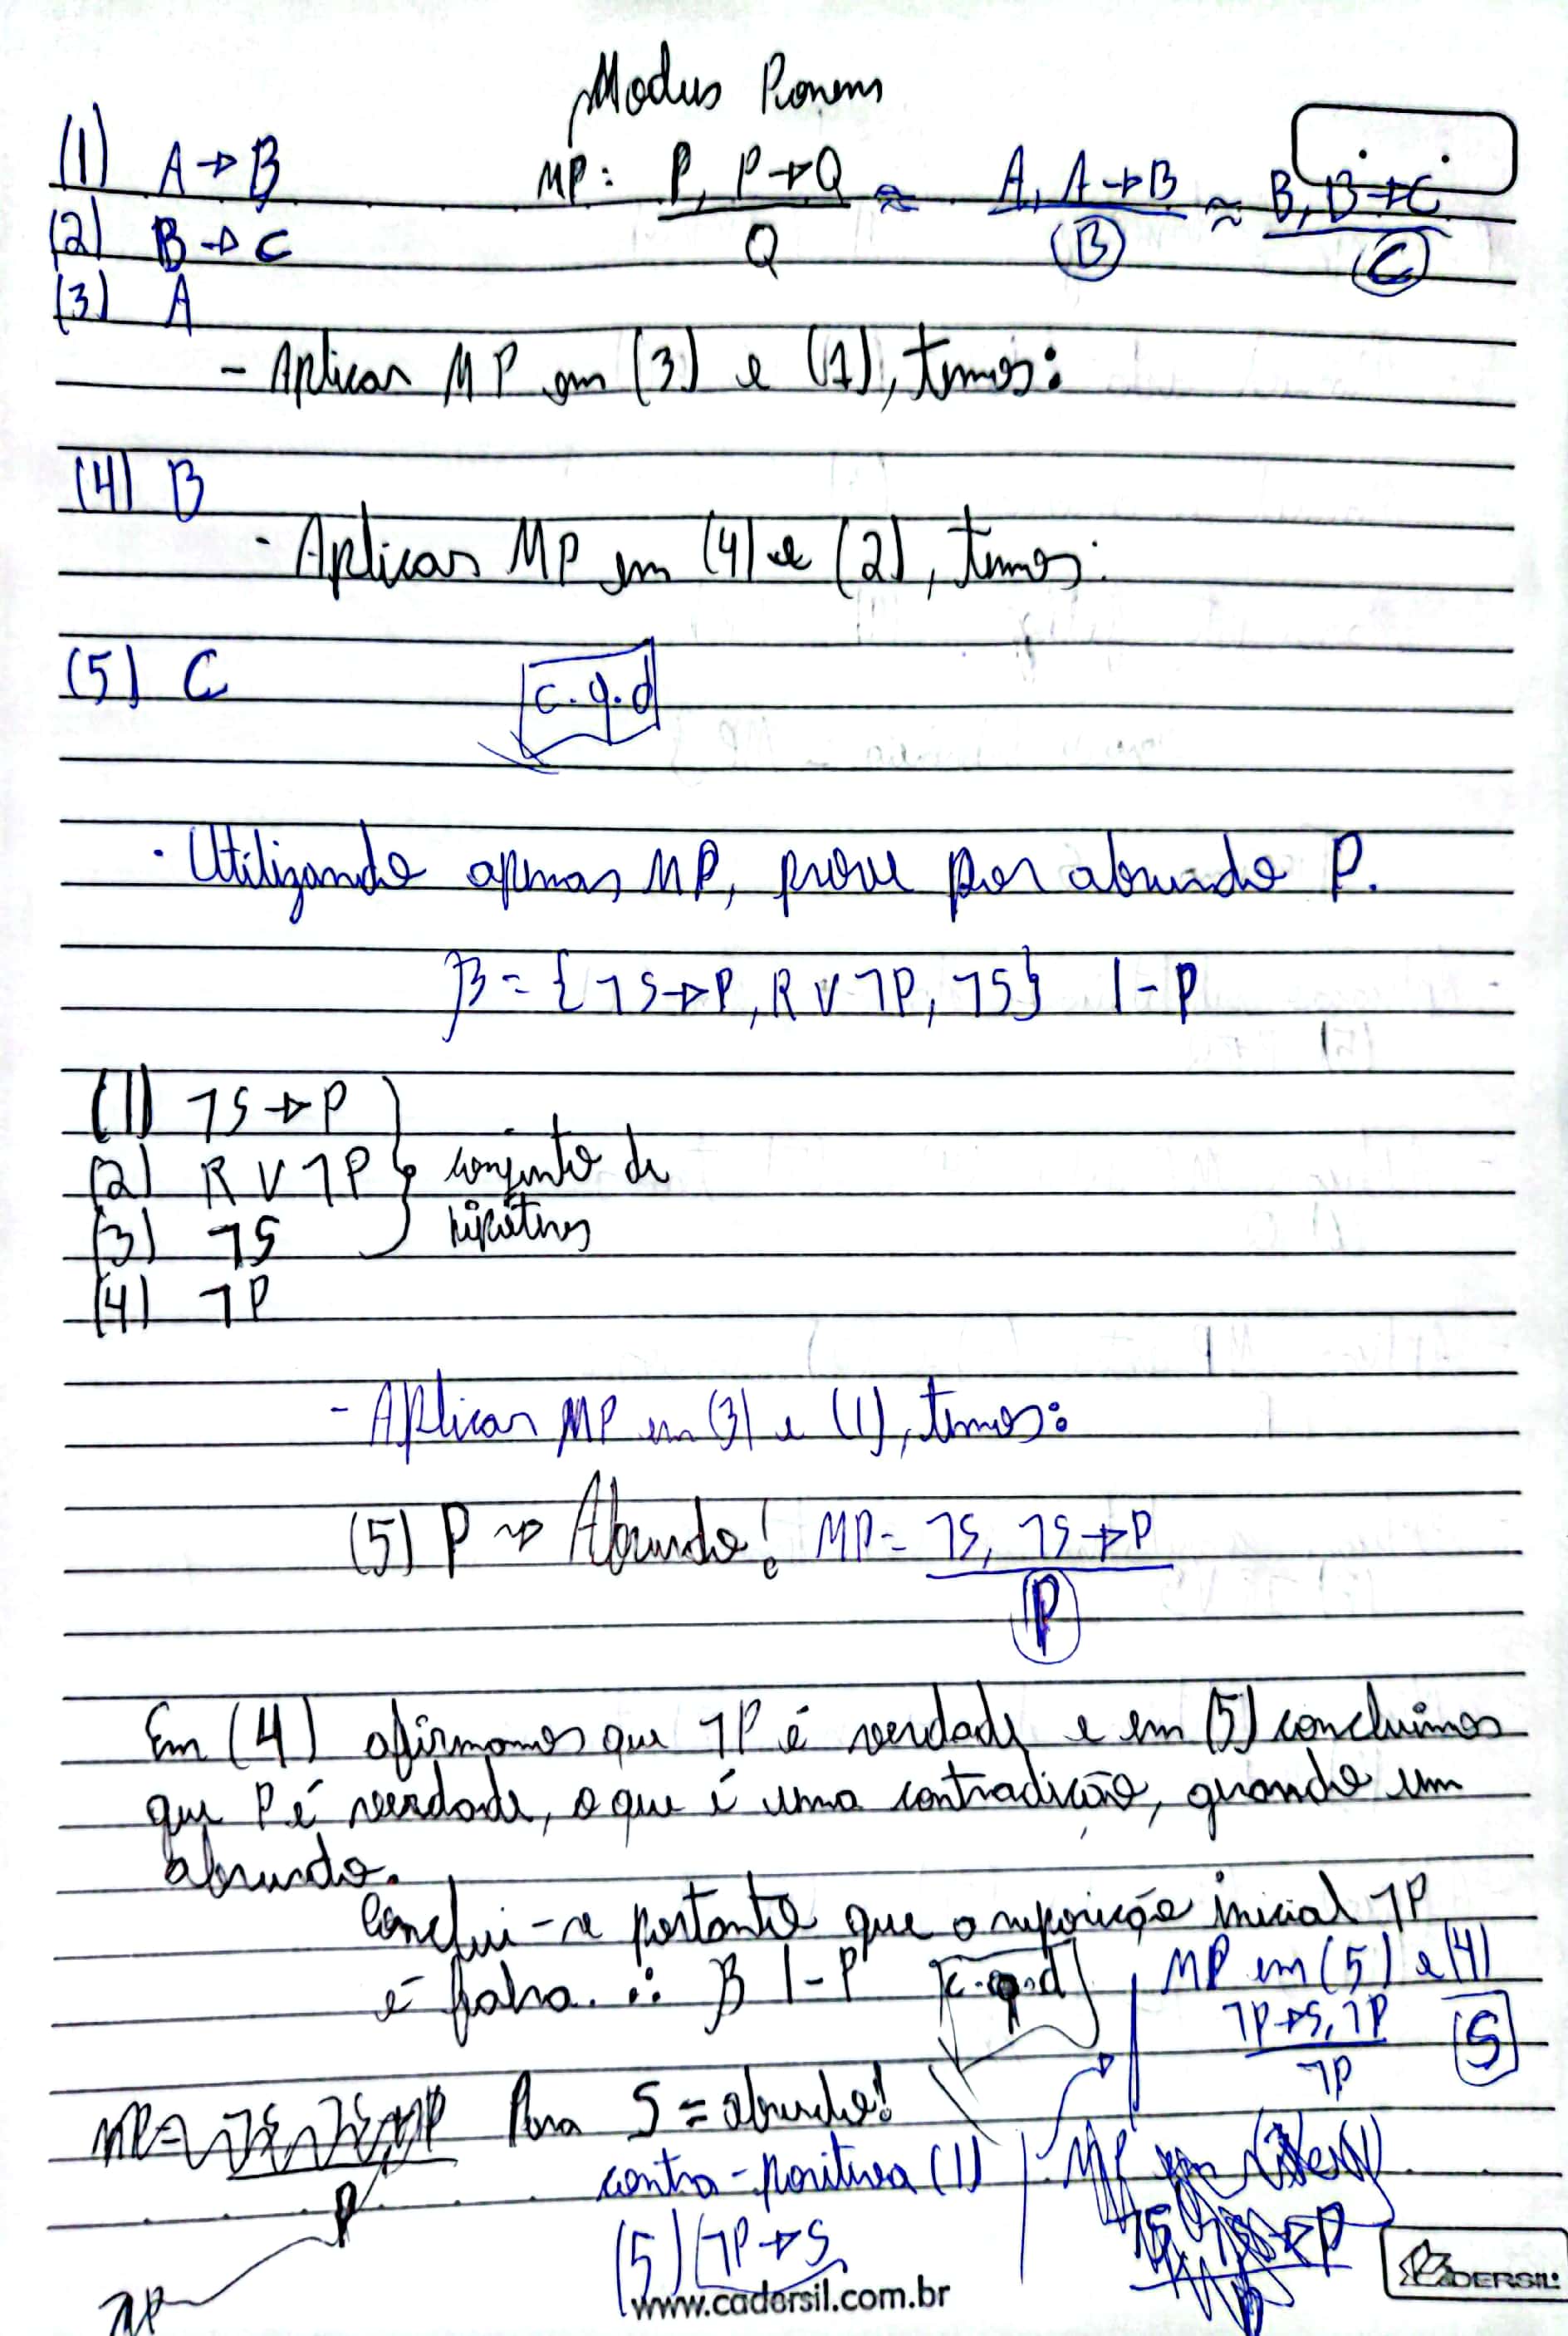 Modus Ponens
(1) A → B MP: P, P → Q ≈ A, A → B ≈ B, B → C
(2) B → C Q B C
(3) A
- Aplicar MP em (3) e (1), temos:
(4) B
- Aplicar MP em (4) e (2), temos:
(5) C c.q.d
· Utilizando apenas MP, prove por absurdo P.
β = {¬S → P, R ∨ ¬P, ¬S} |- P
(1) ¬S → P
(2) R ∨ ¬P } conjunto de
(3) ¬S hipóteses
(4) ¬P
- Aplicar MP em (3) e (1), temos:
(5) P ⇝ Absurdo! MP = ¬S, ¬S → P
P
Em (4) afirmamos que ¬P é verdade e em (5) concluimos
que P é verdade, o que é uma contradição, gerando um
absurdo.
Conclui-se portanto que a suposição inicial ¬P
é falsa. ∴ β |- P c.q.d MP em (5) e (4)
¬P → S, ¬P S
¬P
Para S = absurdo!
contra-positiva (1)
P
(5) ¬P → S
¬P
www.cadersil.com.br
CADERSIL